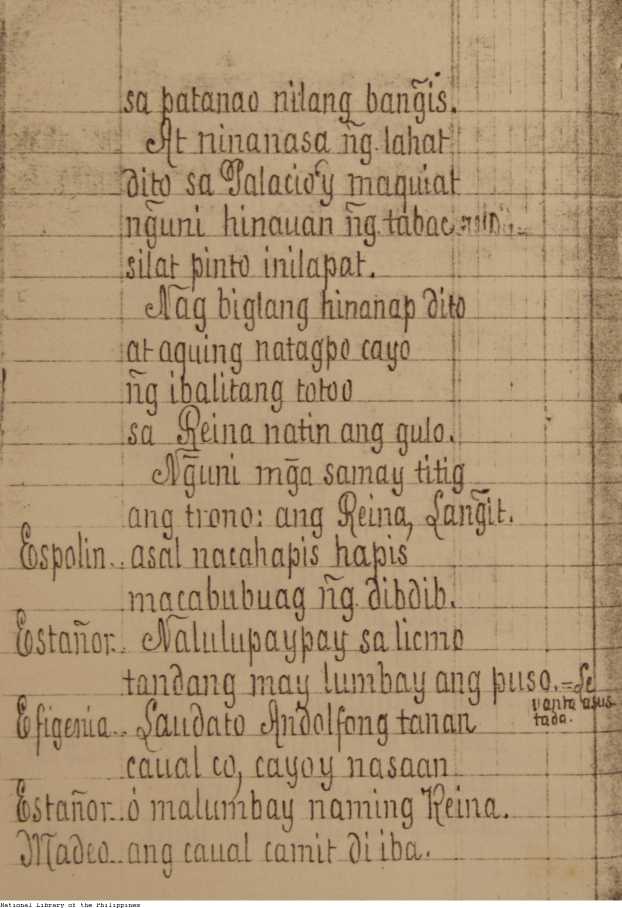 sa patanao nilang bang̃is.
At ninanasa ñg lahat
dito sa Palacio'y maquiat
ng̃uni hinauan ñg tabac
silat pinto inilapat.
Nag biglang hinanap dito
at aquing natagpo cayo
ñg ibalitang totoo
sa Reina natin ang gulo.
Ng̃uni mg̃a samay titig
ang trono: ang Reina, Lang̃it.
Espolin.. asal nacahapis hapis
macabubuag ñg dibdib.
Estañor.. Nalulupaypay sa licmo
tandang may lumbay ang puso.=Se
vanta asus
tada.
Efigenia.. Laudato Andolfong tanan
caual co, cayoy nasaan
Estañor.. ó malumbay naming Reina.
Madeo.. ang caual camit di iba.
National Library of the Philippines